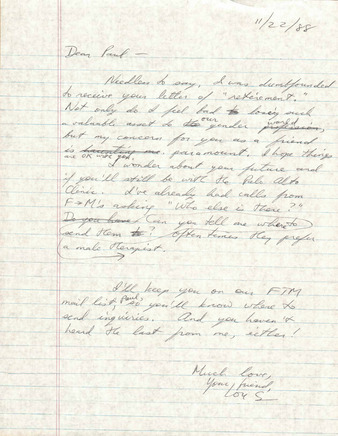 11/22/88
Dear Paul —
Needless to say, I was dumbfounded
to receive your letter of "retirement."
Not only do I feel bad to losing such
a valuable asset to the our gender world profession,
but my concern for you as a friend
is haunting me. paramount. I hope things
are OK with you.
I wonder about your future and
if you'll still be with the Palo Alto
Clinic. I've already had calls from
F→M's asking "Who else is there?"
Do you have Can you tell me where to
send them to? Often times they prefer
a male therapist.
I'll keep you on our FTM
mail list, Paul, so you'll know where to
send inquiries. And you haven't
heard the last from me, either!
Much love,
Your friend,
Lou S